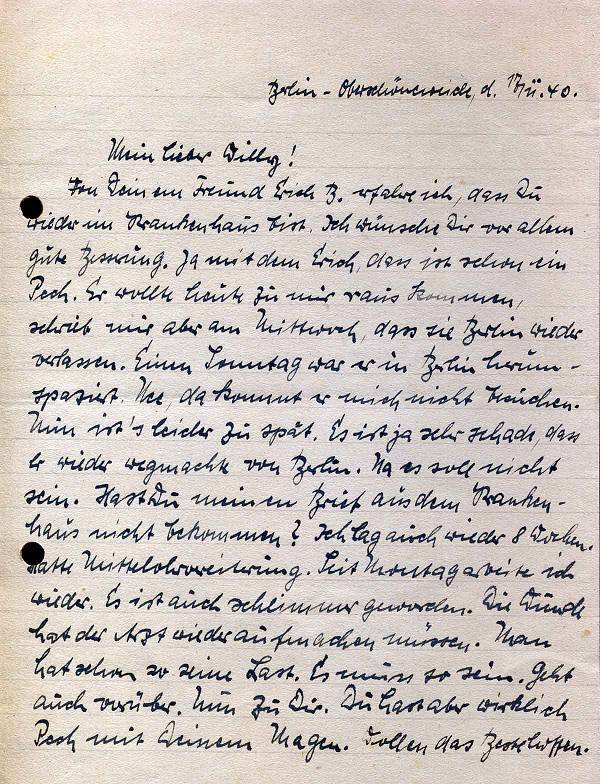 Berlin - Oberschöneweide, d. 17/II. 40.
Mein lieber Willy!
Von Deinem Freund Erich B. erfahre ich, dass Du
wieder im Krankenhaus bist. Ich wünsche Dir vor allem
gute Besserung. Ja mit dem Erich, dass ist schon ein
Pech. Er wollte heute zu mir raus kommen,
schrieb mir aber am Mittwoch, dass sie Berlin wieder
verlassen. Einen Sonntag war er in Berlin herum-
spaziert. Nee, da kommt er mich nicht besuchen.
Nun ist's leider zu spät. Es ist ja sehr schade, dass
er wieder wegmachte von Berlin. Na es soll nicht
sein. Hast Du meinen Brief aus dem Kranken-
haus nicht bekommen? Ich lag auch wieder 8 Wochen.
Hatte Mittelohrvereiterung. Seit Montag arbeite ich
wieder. Es ist auch schlimmer geworden. Die Wunde
hat der Arzt wieder aufmachen müssen. Man
hat schon so seine Last. Es muss so sein. Geht
auch vorüber. Nun zu Dir. Du hast aber wirklich
Pech mit Deinem Magen. Wollen das Beste hoffen.